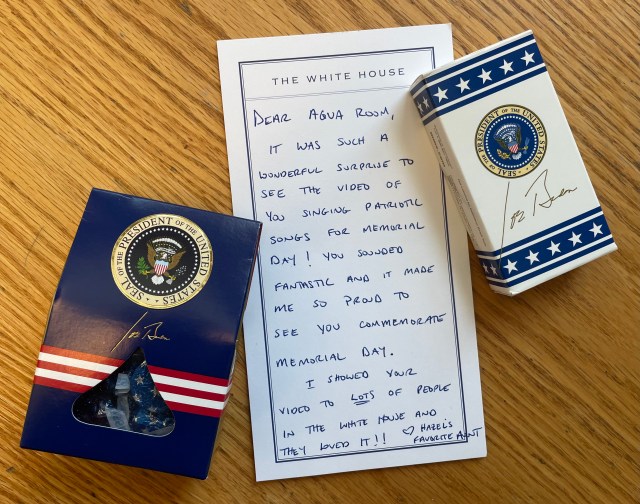 THE WHITE HOUSE
DEAR AGUA ROOM,
IT WAS SUCH A
WONDERFUL SURPRISE TO
SEE THE VIDEO OF
YOU SINGING PATRIOTIC
SONGS FOR MEMORIAL
DAY! YOU SOUNDED
FANTASTIC AND IT MADE
ME SO PROUD TO
SEE YOU COMMEMORATE
MEMORIAL DAY.
I SHOWED YOUR
VIDEO TO LOTS OF PEOPLE
IN THE WHITE HOUSE AND
THEY LOVED IT!! ♡ HAZEL'S
FAVORITE AUNT
SEAL OF THE PRESIDENT OF THE UNITED STATES
Joe Biden
SEAL OF THE PRESIDENT OF THE UNITED STATES
Joe Biden